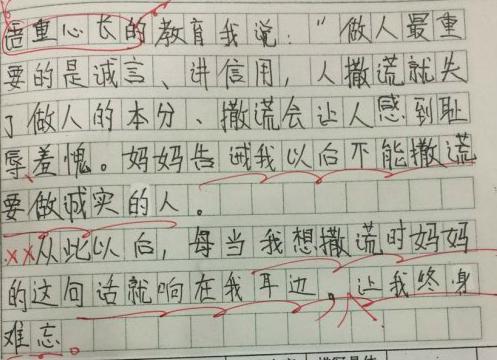 语重心长的教育我说:“做人最重
要的是诚言、讲信用,人撒谎就失
了做人的本分、撒谎会让人感到耻
辱羞愧。妈妈告诫我以后不能撒谎
要做诚实的人。
从此以后,每当我想撒谎时妈妈
的这句话就响在我耳边,让我终身
难忘。